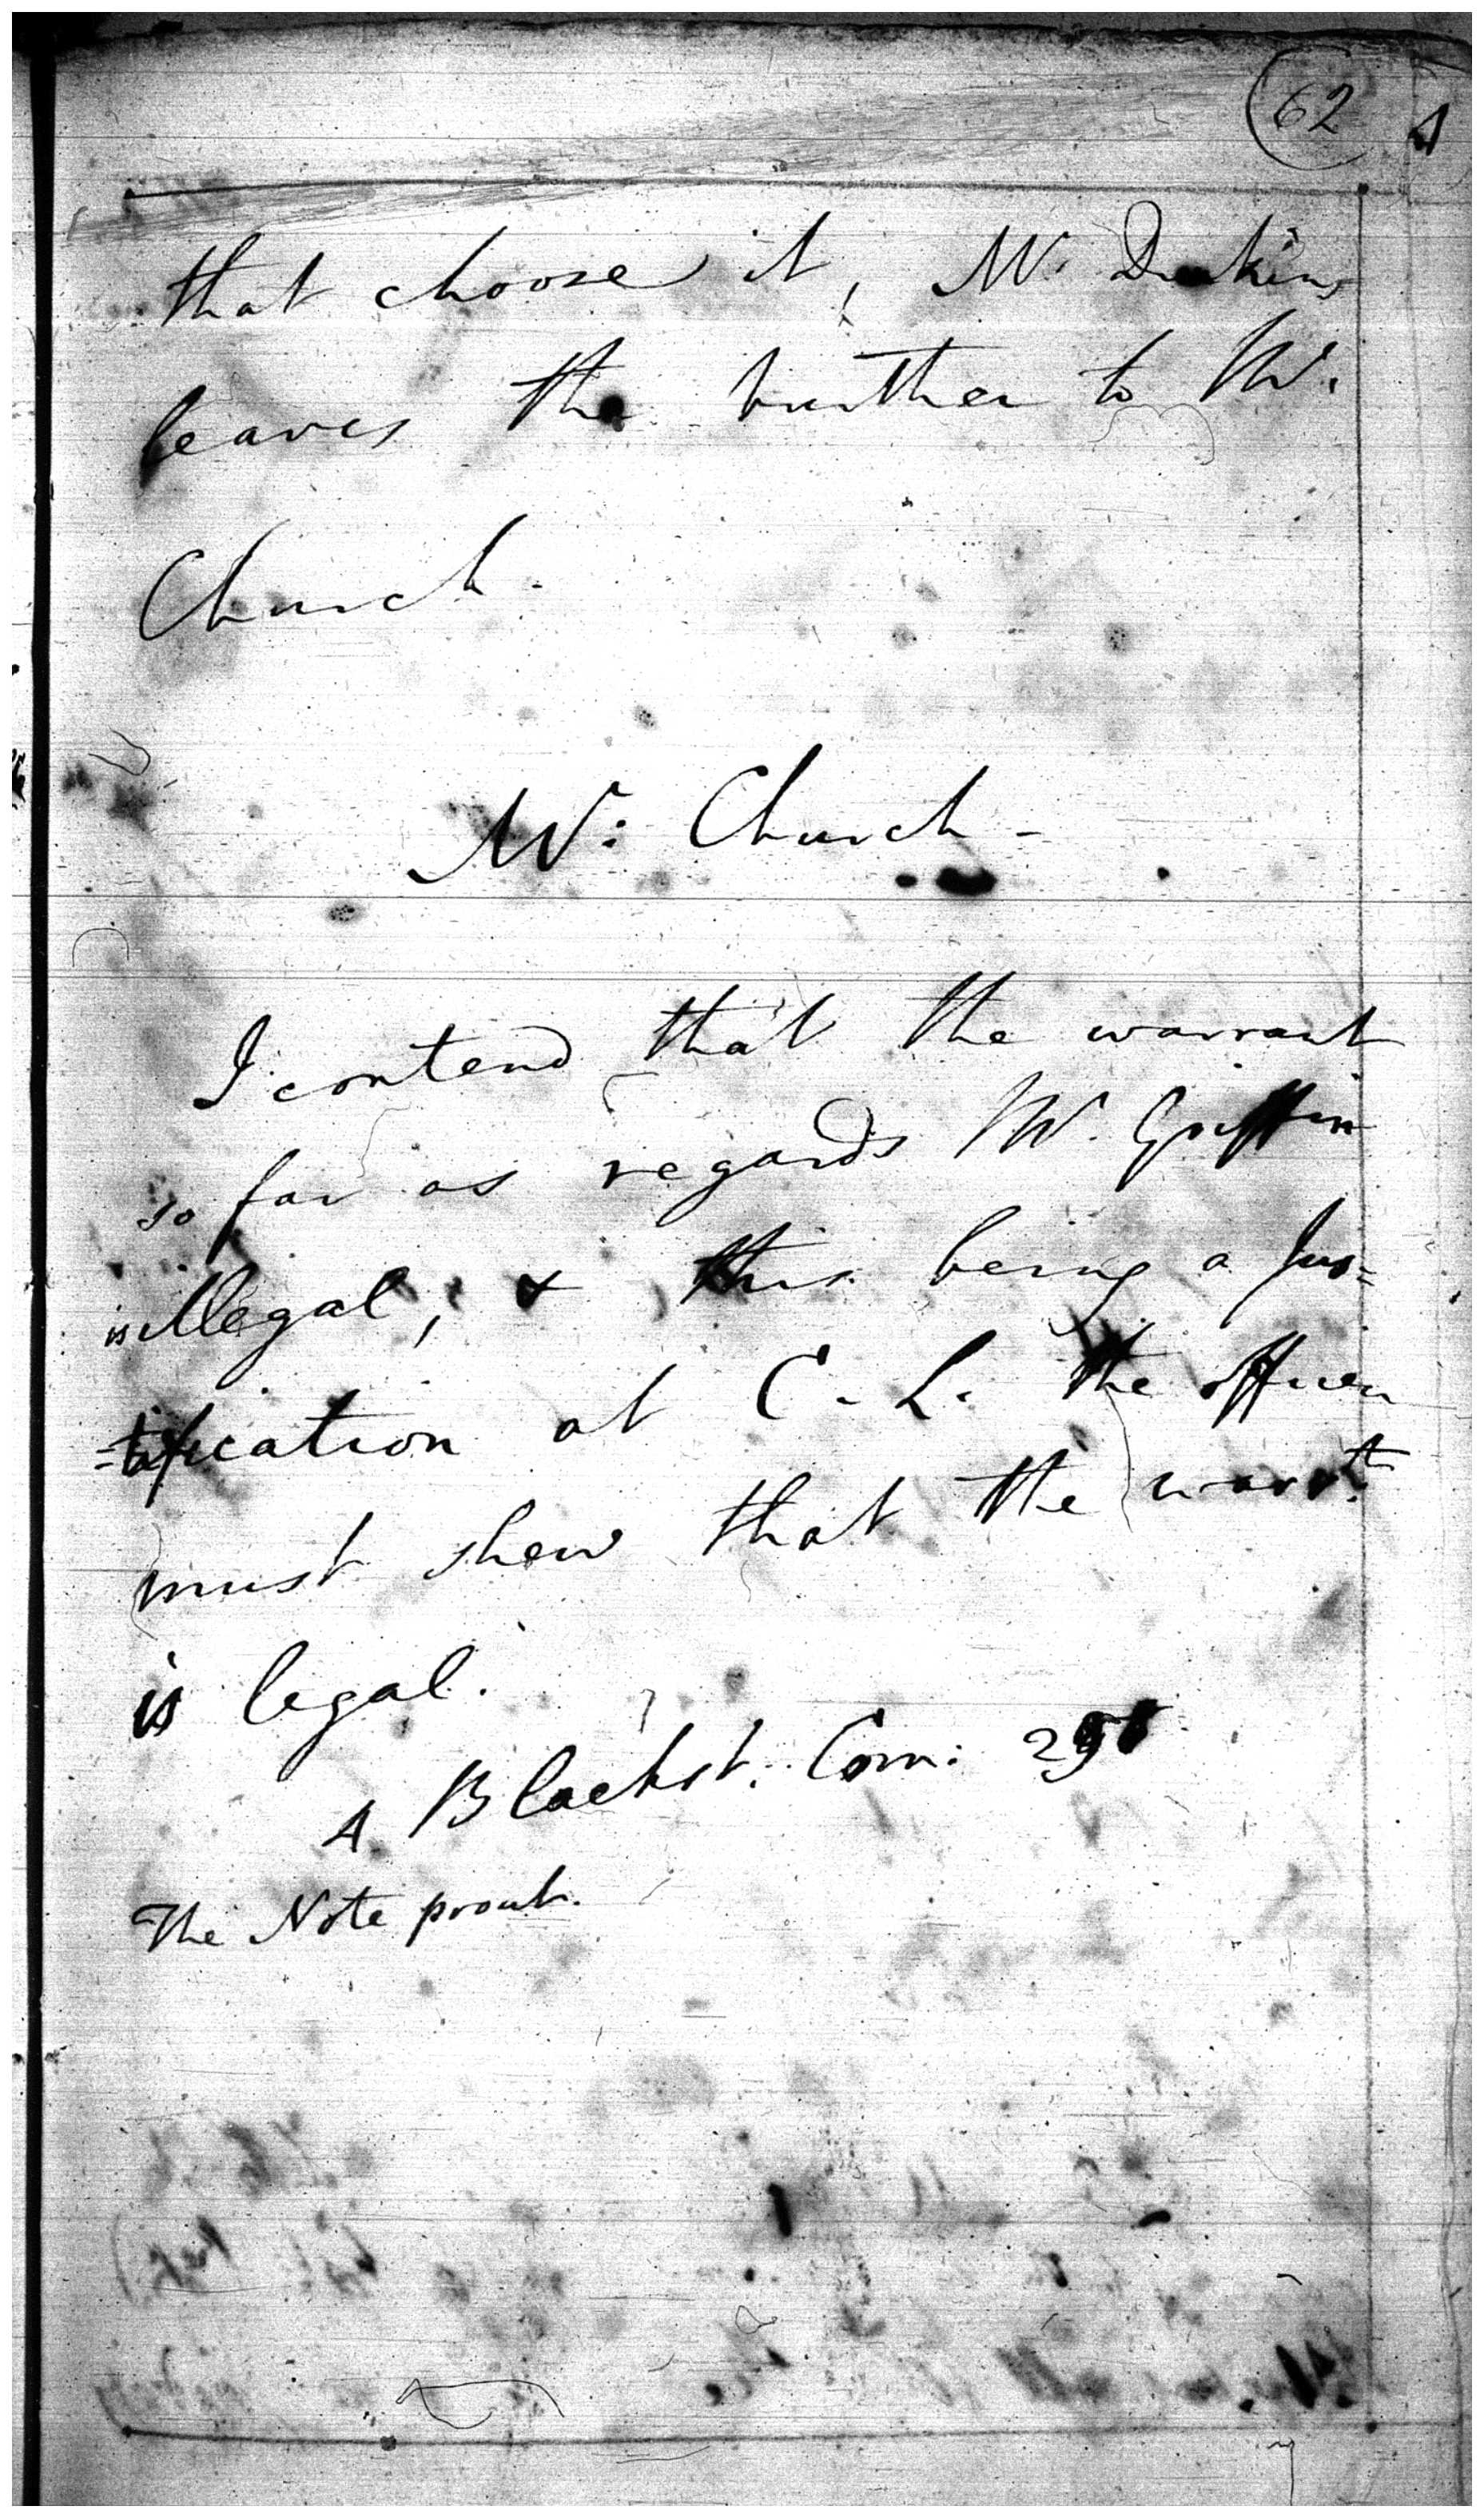 62
that choose it, Mr. Deakins
leaves the further to Mr.
Church.
Mr: Church -
I contend that the warrant
so far as regards Mr. Griffin
is illegal, & this being a Jus=
=tification at C. L. the officer
must shew that the warrt.
is legal.
4 Blackst. Com: 291
The Note prout.